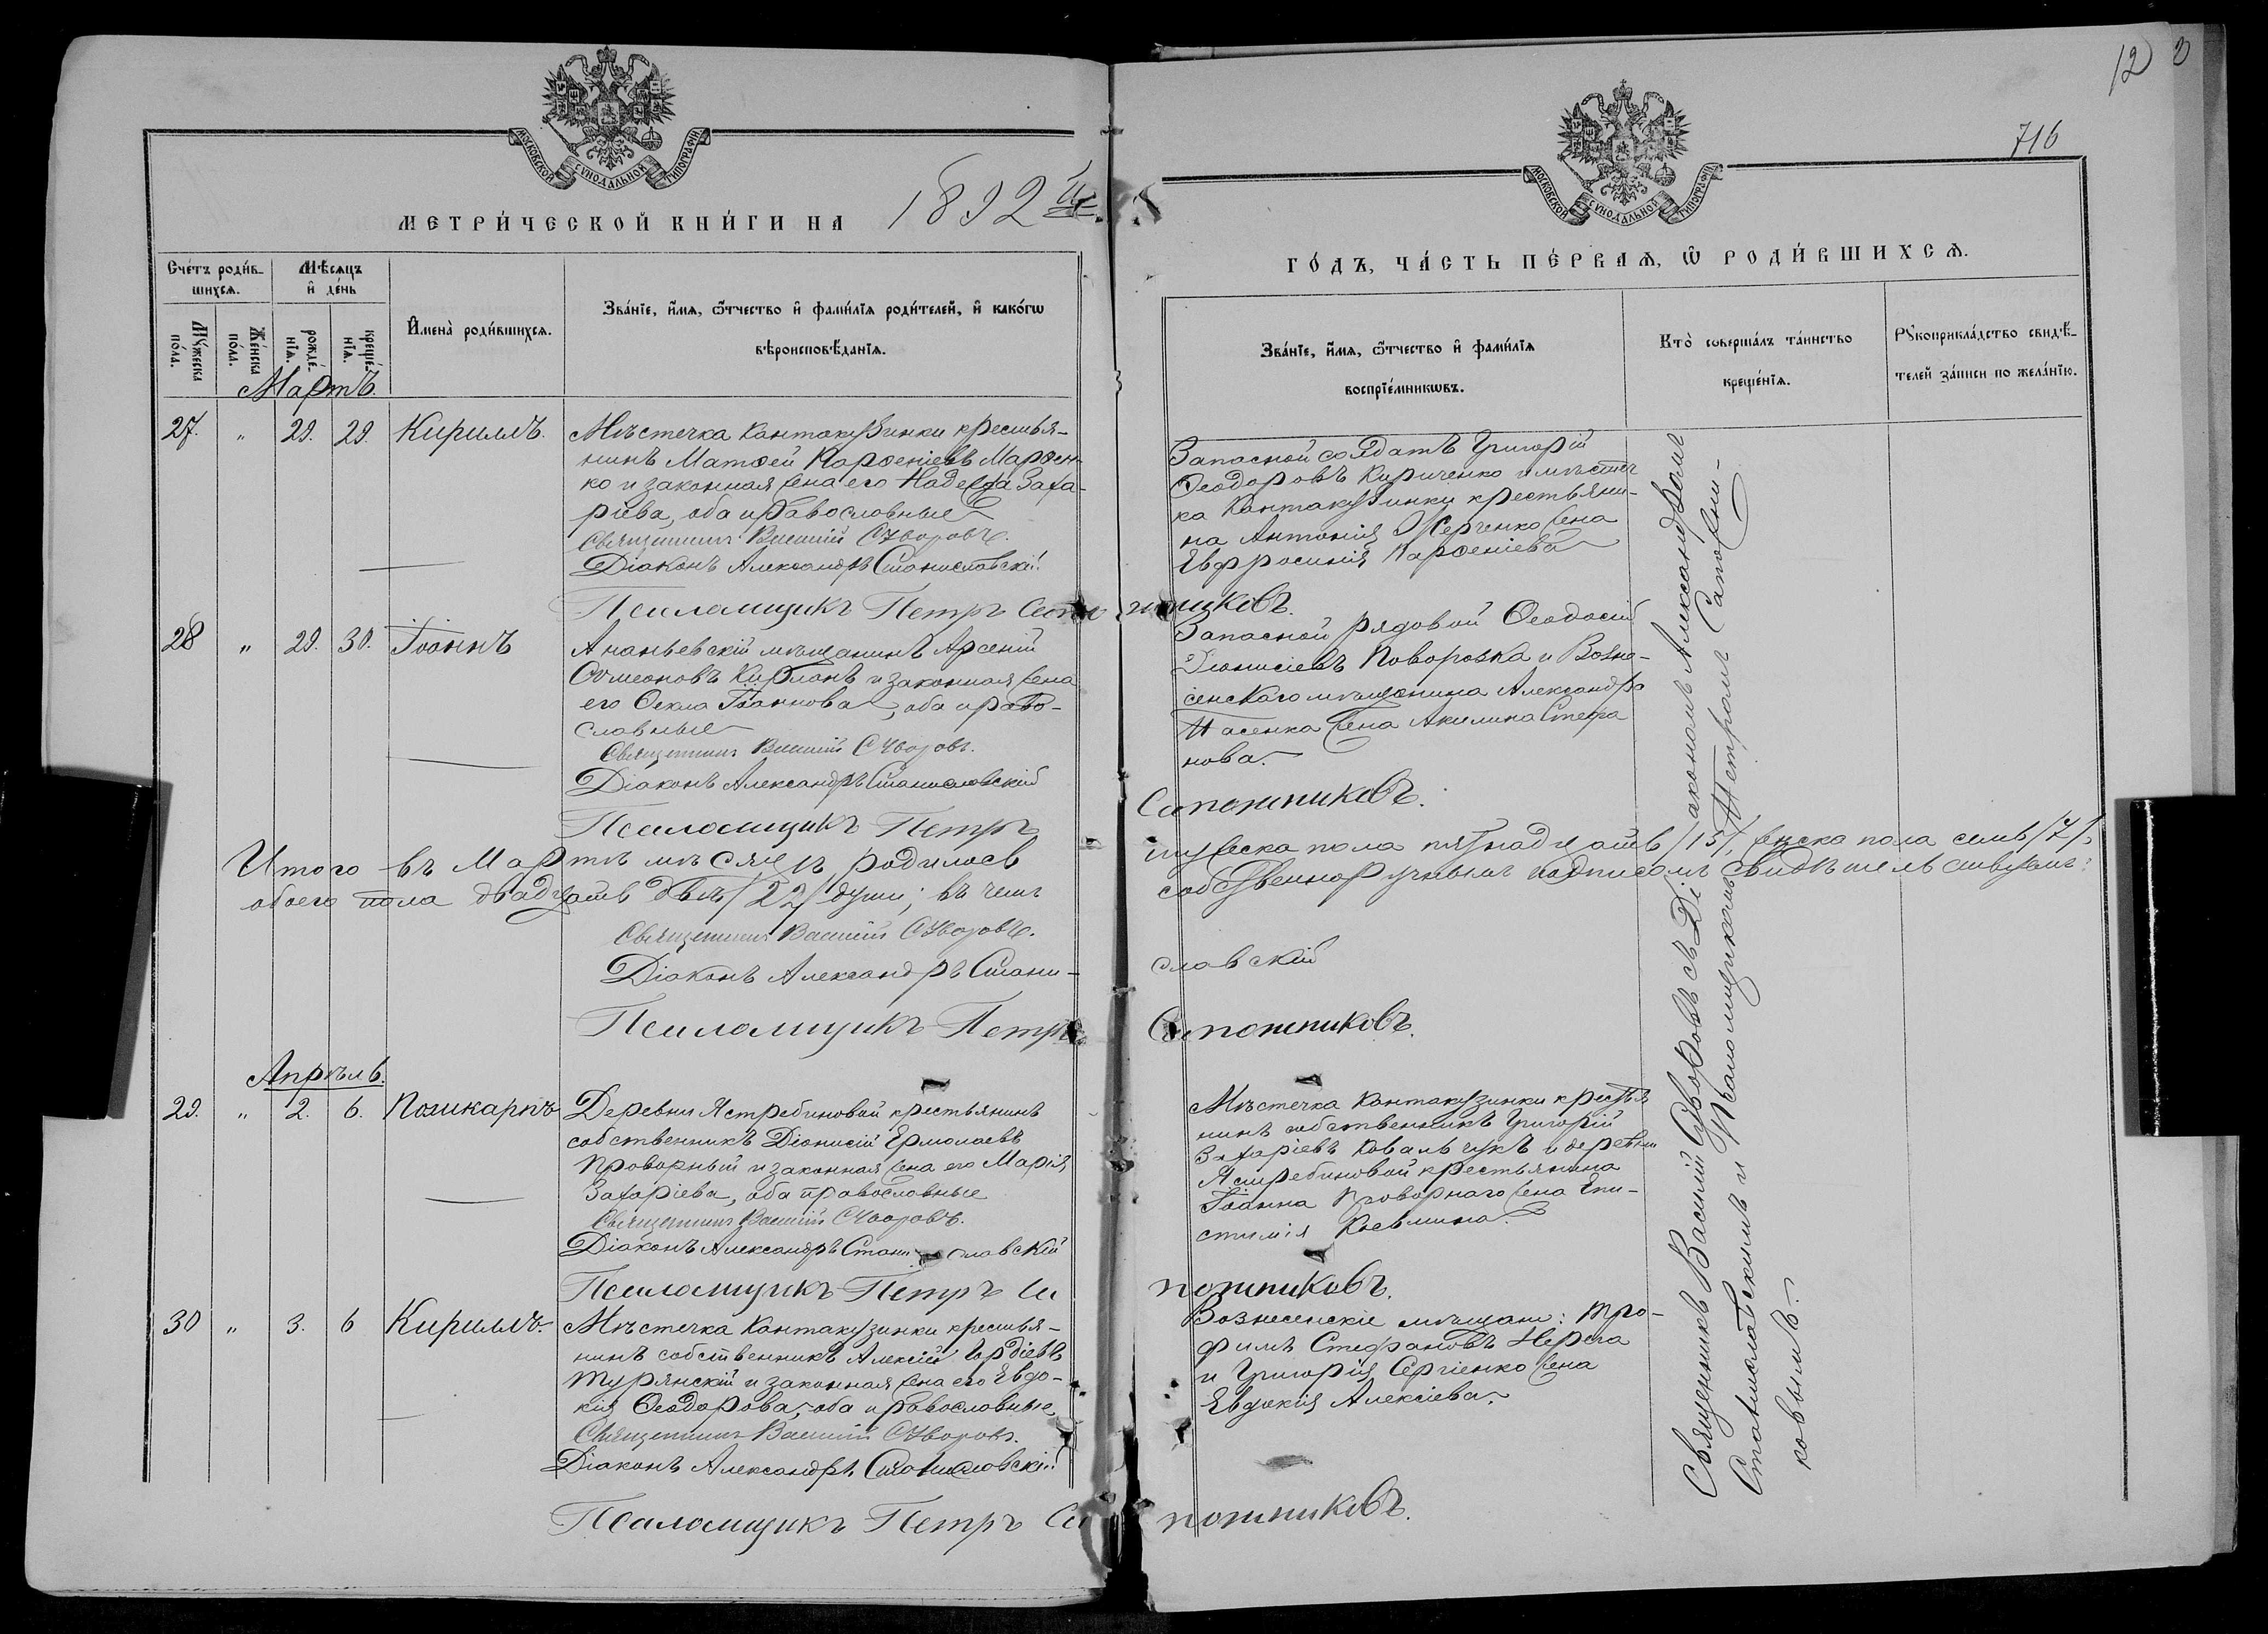 12
716
МОСКОВСКОЙ СѴНОДАЛЬНОЙ ТИПОГРАФІИ
МОСКОВСКОЙ СѴНОДАЛЬНОЙ ТИПОГРАФІИ
МЕТРИ́ЧЕСКОЙ КНИ́ГИ НА 1892й
ГО́ДЪ, ЧА́СТЬ ПЕ́РВАѦ, Ѡ҆ РОДИ́ВШИХСѦ.
Сче́тъ роди́в-
шихсѧ.
Мѣ́сѧцъ
и҆ де́нь
Мꙋ́жеска
по́ла.
Же́нска
по́ла.
рожде́-
нїѧ.
креще́-
нїѧ.
И҆мена̀ роди́вшихсѧ.
Зва́нїе, и҆́мѧ, ѻ҆́тчество и҆ фами́лїѧ роди́телей, и҆ како́гѡ
вѣроисповѣ́данїѧ.
Зва́нїе, и҆́мѧ, ѻ҆́тчество и҆ фами́лїѧ
воспрїе́мникѡвъ.
Кто̀ соверша́лъ та́инство
креще́нїѧ.
Рꙋкоприкла́дство свидѣ́-
телей за́писи по жела́нїю.
Мартъ.
27. " 29. 29. Кириллъ.
Мѣстечка Кантакузинки крестья-
нинъ Матѳей Парѳеніевъ Марѳен-
ко и законная жена его Надежда Заха-
ріева, оба православные
Священникъ Василій Суворовъ.
Діаконъ Александръ Станиславскій
Псаломщикъ Петръ Сапожниковъ.
Запасной солдатъ Григорій
Ѳеодоровъ Кириченко и мѣстеч
ка Кантакузинки крестьяни-
на Антонія Жерченко жена
Евфросинія Парѳеніева
28 " 29. 30. Іоаннъ
Ананьевскій мѣщанинъ Арсеній
Сѵмеоновъ Капланъ и законная жена
его Ѳекла Іоаннова, оба право-
славные
Священникъ Василій Суворовъ.
Діаконъ Александръ Станиславскій
Псаломщикъ Петръ Сапожниковъ.
Запасной рядовой Ѳеодосій
Діонисіевъ Поворозка и Возне-
сенскаго мѣщанина Александра
жена Акилина Стефа
нова.
Итого въ Мартѣ мѣсяцѣ родилось мужеска пола пятнадцать /15/, женска пола семь /7/,
обоего пола двадцать двѣ /22/ души; въ чемъ собственноручнымъ подписомъ свидѣтельствуемъ:
Священникъ Василій Суворовъ.
Діаконъ Александръ Станиславскій
Псаломщикъ Петръ Сапожниковъ.
Апрѣль.
29. " 2. 6. Поликарпъ
Деревни Ястребиновой крестьянинъ
собственникъ Діонисій Ермолаевъ
Проворный и законная жена его Марія
Захаріева, оба православные
Священникъ Василій Суворовъ.
Діаконъ Александръ Станиславскій
Псаломщикъ Петръ Сапожниковъ.
Мѣстечка Кантакузинки крестья
нинъ собственникъ Григорій
Захаріевъ Ковальчукъ и деревни
Ястребиновой крестьянина
Іоанна Проворнаго жена Епи-
стимія Косьмина.
30 " 3. 6 Кириллъ.
Мѣстечка Кантакузинки крестья-
нинъ собственникъ Алексій Гордіевъ
Турянскій и законная жена его Евдо-
кія Ѳеодорова, оба православные
Священникъ Василій Суворовъ.
Діаконъ Александръ Станиславскій
Псаломщикъ Петръ Сапожниковъ.
Вознесенскіе мѣщане: Тро-
фимъ Стефановъ
и Григорія Сергіенко жена
Евдокія Алексіева.
Священникъ Василій Суворовъ съ Діакономъ Александромъ
Станиславскимъ и Псаломщикомъ Петромъ Сапожни-
ковымъ.